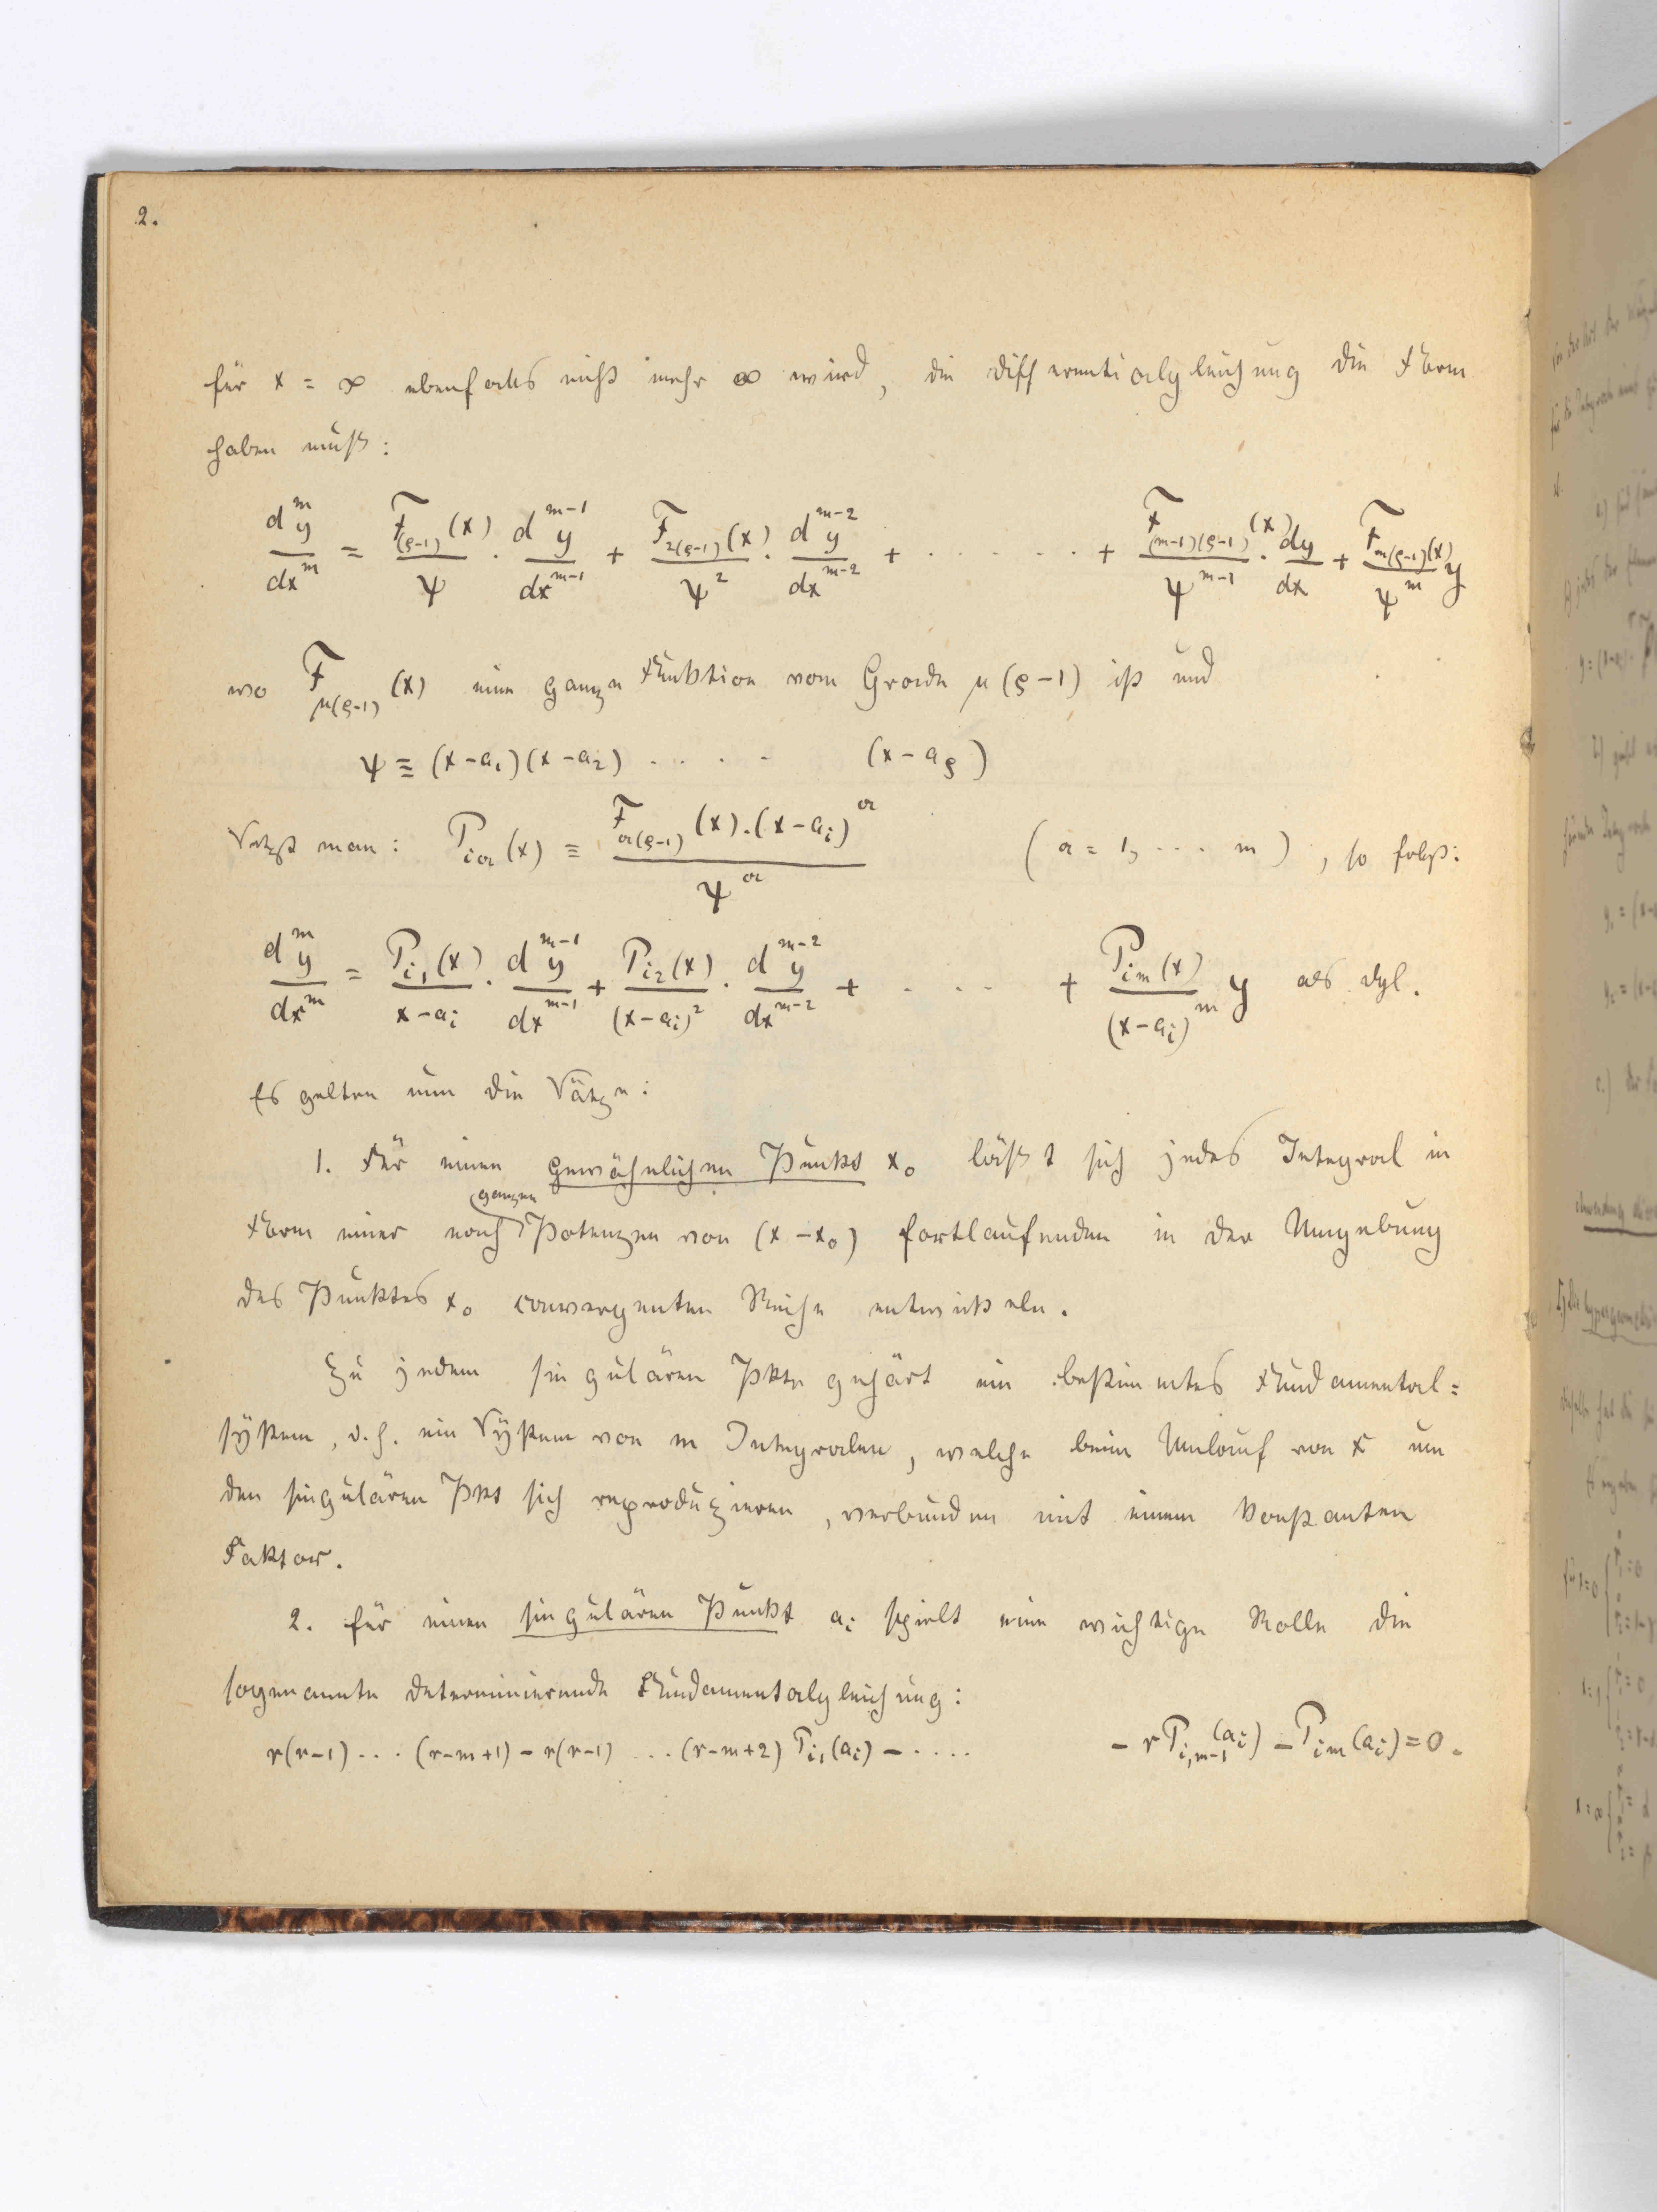 2.
für x = ∞ ebenfalls nicht mehr ∞ wird, die Differentialgleichung die Form
haben muß:
d^m y/dx^m = F_(ϱ-1)(x)/ψ · d^{m-1}y/dx^{m-1} + F_2(ϱ-1)(x)/ψ^2 · d^{m-2}y/dx^{m-2} + · · · · · · + F_(m-1)(ϱ-1)(x)/ψ^{m-1} · dy/dx + F_m(ϱ-1)(x)/ψ^m y
wo F_μ(ϱ-1)(x) eine ganze Funktion vom Grade μ(ϱ-1) ist und
ψ ≡ (x-a₁)(x-a₂) · · · · (x-a_ϱ)
Setzt man: P_ia(x) ≡ F_a(ϱ-1)(x).(x-a_i)^a/ψ^a (a = 1, · · · m), so folgt:
d^m y/dx^m = P_i1(x)/x-a_i · d^{m-1}y/dx^{m-1} + P_i2(x)/(x-a_i)^2 · d^{m-2}y/dx^{m-2} + · · · · + P_im(x)/(x-a_i)^m y als Dgl.
Es gelten nun die Sätze:
1. Für einen gewöhnlichen Punkt x₀ läßt sich jedes Integral in
ganzen
Form einer nach Potenzen von (x-x₀) fortlaufenden in der Umgebung
des Punktes x₀ convergenten Reihe entwickeln.
Zu jedem singulären Pkte gehört ein bestimmtes Fundamental=
system, d.h. ein System von m Integralen, welche beim Umlauf von x um
den singulären Pkt sich reproduzieren, verbunden mit einem konstanten
Faktor.
2. für einen singulären Punkt a_i spielt eine wichtige Rolle die
sogenannte determinierende Fundamentalgleichung:
r(r-1) · · · (r-m+1) - r(r-1) · · · (r-m+2) P_i1(a_i) - · · · · - r P_i,m-1(a_i) - P_im(a_i) = 0.